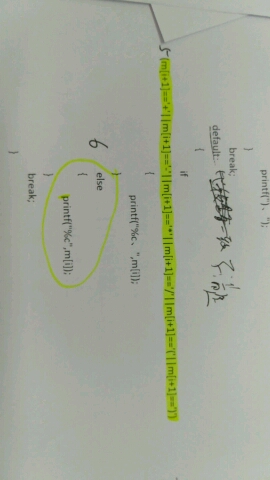 printf(")、");
}
break;
default:
{
if
5-(m[i+1]=='+'||m[i+1]=='-'||m[i+1]=='*'||m[i+1]=='/'||m[i+1]=='('||m[i+1]==')')
{
printf("%c、",m[i]);
}
6 else
{
printf("%c",m[i]);
}
break;
}